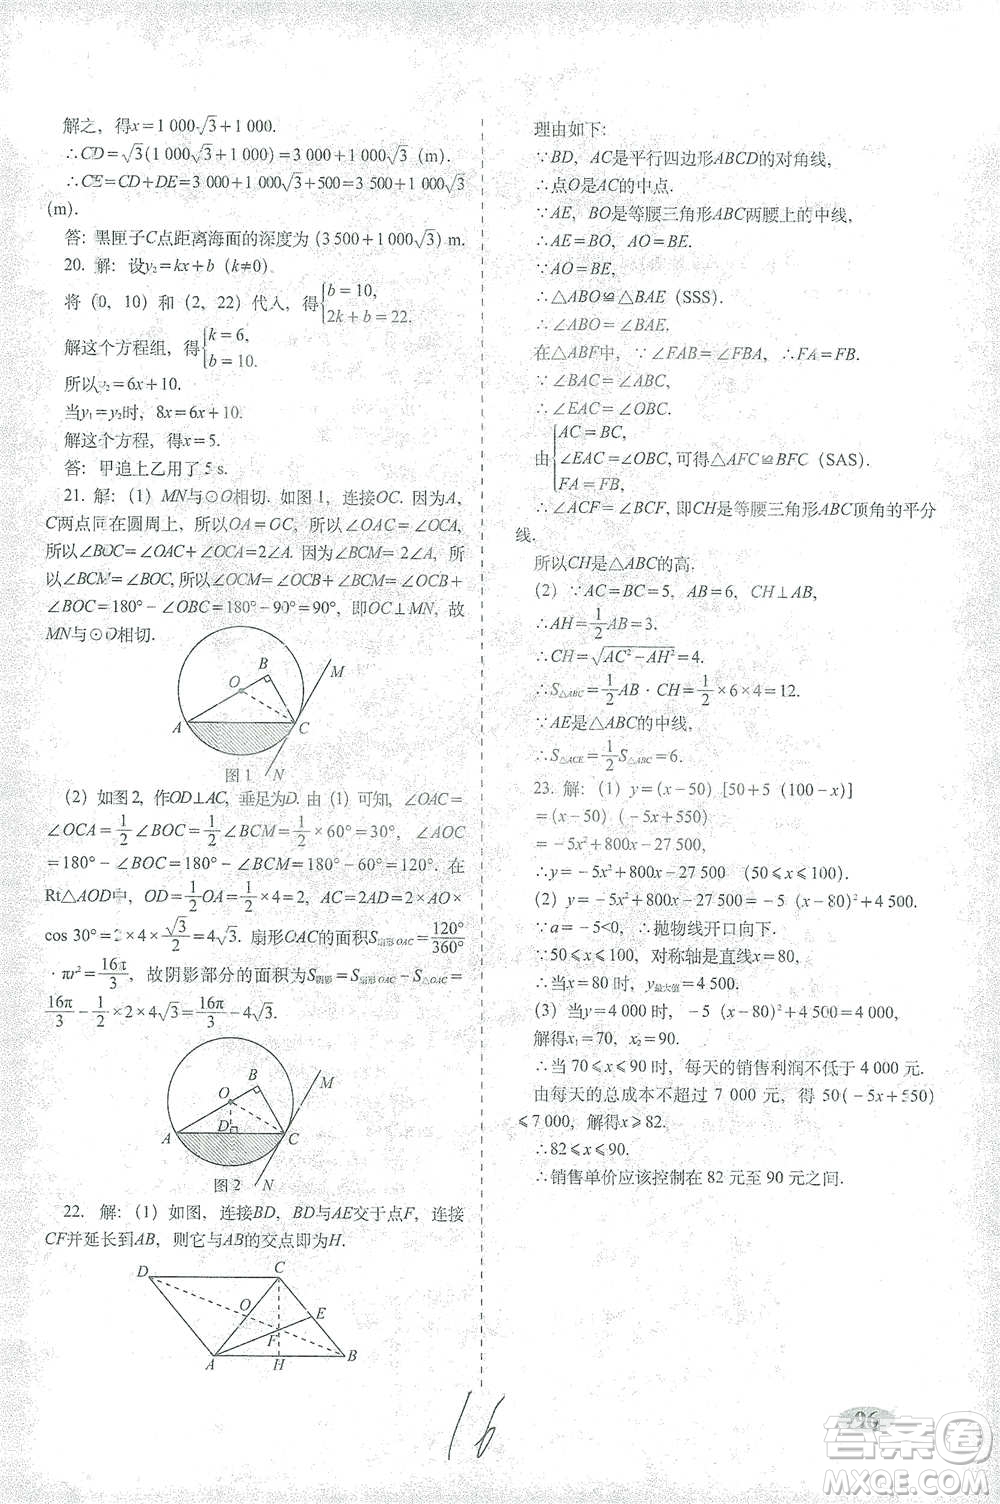 解之，得x=1 000√3+1 000.
∴CD=√3(1 000√3+1 000)=3 000+1 000√3 (m).
∴CE=CD+DE=3 000+1 000√3+500=3 500+1 000√3
(m).
答：黑匣子C点距离海面的深度为 (3 500+1 000√3) m.
20. 解：设y₂=kx+b (k≠0).
将 (0, 10) 和 (2, 22) 代入，得{b=10, 2k+b=22.
解这个方程组，得{k=6, b=10.
所以y₂=6x+10.
当y₁=y₂时，8x=6x+10.
解这个方程，得x=5.
答：甲追上乙用了5 s.
21. 解：(1) MN与⊙O相切. 如图1，连接OC. 因为A，
C两点同在圆周上，所以OA=OC，所以∠OAC=∠OCA，
所以∠BOC=∠OAC+∠OCA=2∠A. 因为∠BCM=2∠A，所
以∠BCM=∠BOC，所以∠OCM=∠OCB+∠BCM=∠OCB+
∠BOC=180°-∠OBC=180°-90°=90°，即OC⊥MN，故
MN与⊙O相切.
M
B
O
A
C
N
图1
(2) 如图2，作OD⊥AC，垂足为D. 由 (1) 可知，∠OAC=
∠OCA=1/2∠BOC=1/2∠BCM=1/2×60°=30°，∠AOC
=180°-∠BOC=180°-∠BCM=180°-60°=120°. 在
Rt△AOD中，OD=1/2OA=1/2×4=2，AC=2AD=2OA·
cos 30°=2×4×√3/2=4√3. 扇形OAC的面积S扇形OAC=120°/360°
·πr²=16π/3，故阴影部分的面积为S阴影=S扇形OAC-S△OAC=
16π/3-1/2×2×4√3=16π/3-4√3.
M
B
O
D
A
C
N
图2
22. 解：(1) 如图，连接BD，BD与AE交于点F，连接
CF并延长到AB，则它与AB的交点即为H.
D
C
O
E
F
A
H
B
理由如下：
∵BD，AC是平行四边形ABCD的对角线，
∴点O是AC的中点.
∵AE，BO是等腰三角形ABC两腰上的中线，
∴AE=BO，AO=BE.
∵AO=BE，
∴△ABO≌△BAE (SSS).
∴∠ABO=∠BAE.
在△ABF中，∵∠FAB=∠FBA，∴FA=FB.
∵∠BAC=∠ABC，
∴∠EAC=∠OBC.
由{AC=BC, ∠EAC=∠OBC, FA=FB, 可得△AFC≌BFC (SAS).
∴∠ACF=∠BCF，即CH是等腰三角形ABC顶角的平分
线.
所以CH是△ABC的高.
(2) ∵AC=BC=5，AB=6，CH⊥AB，
∴AH=1/2AB=3.
∴CH=√(AC²-AH²)=4.
∴S△ABC=1/2AB·CH=1/2×6×4=12.
∵AE是△ABC的中线，
∴S△ACE=1/2S△ABC=6.
23. 解：(1) y=(x-50) [50+5 (100-x)]
=(x-50) (-5x+550)
=-5x²+800x-27 500,
∴y=-5x²+800x-27 500 (50⩽x⩽100).
(2) y=-5x²+800x-27 500=-5 (x-80)²+4 500.
∵a=-5<0, ∴抛物线开口向下.
∵50⩽x⩽100，对称轴是直线x=80,
∴当x=80 时，y最大值=4 500.
(3) 当y=4 000 时，-5 (x-80)²+4 500=4 000,
解得x₁=70, x₂=90.
∴当 70⩽x⩽90 时，每天的销售利润不低于 4 000 元.
由每天的总成本不超过 7 000 元，得 50(-5x+550)
⩽7 000，解得x⩾82.
∴82⩽x⩽90.
∴销售单价应该控制在 82 元至 90 元之间.
16
96
答案圈
MXQE.COM